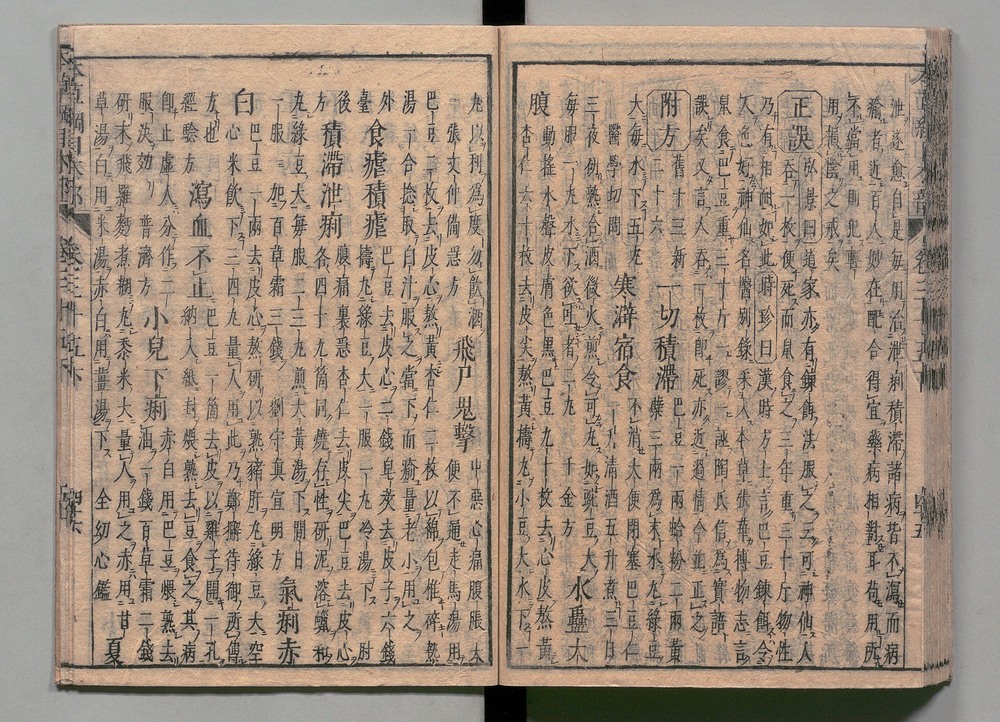 泄遂愈自是毎用治泄痢積滯諸病皆不瀉而病
癒者近百人妙在配合得宜藥病相對耳苟用所
不當用則犯輕
用損陰之戒矣
正誤 弘景曰道家亦有鍊餌法服之云可神仙人
吞一枚便死而鼠食之三年重三十斤物性
乃有相耐如此時珍曰漢時方士言巴豆鍊餌令
人色好神仙名醫別錄采入本草張華博物志言
鼠食巴豆重三十斤一謬一誣陶氏信爲實語
誤矣又言人吞一枚即死亦近過情今並正之
附方 舊十三新
二十六 一切積滯 巴豆一兩蛤粉二兩黃
蘗三兩爲末水丸綠豆
大毎水下五丸
醫學切問 寒澼宿食 不消大便閉塞巴豆仁
一升清酒五升煮三日
三夜研熟合酒微火煎令可丸如豌豆大
毎服一丸水下欲吐者二丸 千金方 水蠱大
腹 動搖水聲皮膚色黑巴豆九十枚去心皮熬黃
杏仁六十枚去皮尖熬黃擣丸小豆大水下一
丸以利爲度勿飲酒
張文仲備急方 飛尸鬼擊 中惡心痛腹脹大
便不通走馬湯用
巴豆二枚去皮心熬黃杏仁二枚以綿包椎碎熱
湯一合捻取白汁服之當下而癒量老小用之
外臺 食瘧積瘧 巴豆去皮心二錢皂莢去皮子六錢
擣丸綠豆大一服一丸冷湯下 肘
後方 積滯泄痢 腹痛裏急杏仁去皮尖巴豆去皮心
各四十九箇同燒存性研泥溶蠟和
丸綠豆大毎服二三丸煎大黃湯下間日
一服 一加百草霜三錢 劉守眞宣明方 氣痢赤
白 巴豆一兩去皮心熬研以熟豬肝丸綠豆大空
心米飮下三四丸量人用此乃鄭獬侍御所傳
方也
經驗方 瀉血不止 巴豆一箇去皮以雞子開一孔
納入紙封煨熟去豆食之其病
即止虛人分作二
服決效 普濟方 小兒下痢 赤白用巴豆煨熟去
油一錢百草霜二錢
研末飛羅麪煮糊丸黍米大量人用之赤用甘
草湯白用米湯赤白用薑湯下 全幼心鑑 夏